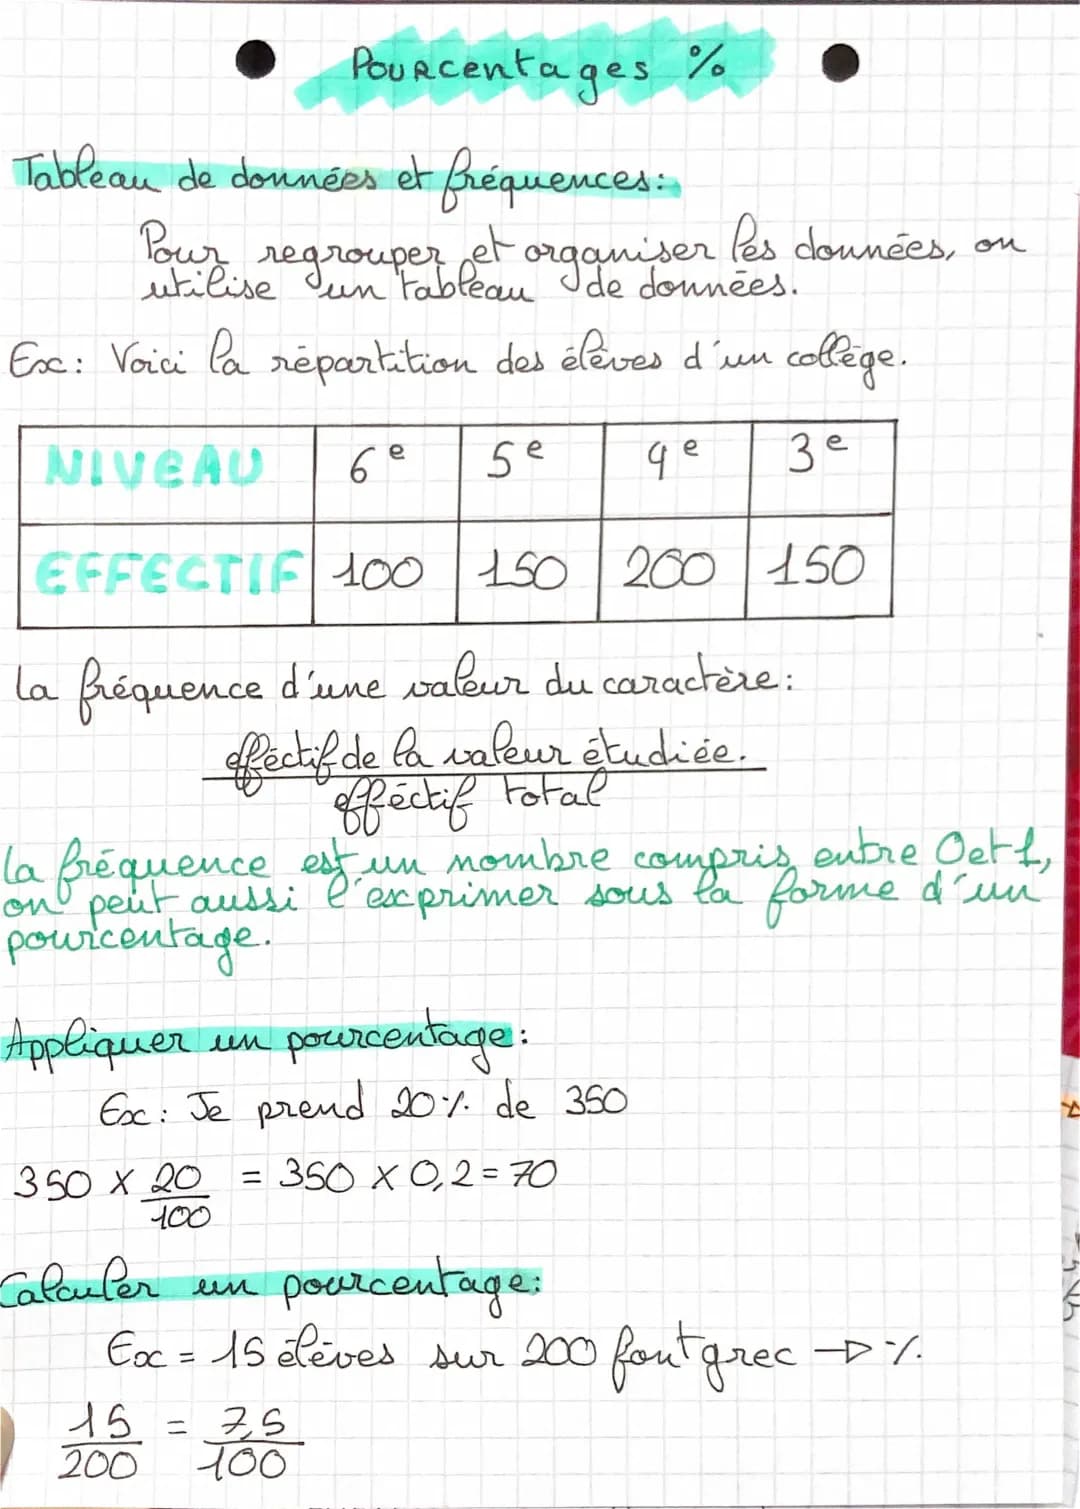 Pourcentages %
Tableau de données et fréquences:
Pour regrouper et organiser les données, on
utilise un tableau de données.
Ex: Voici la répartition des élèves d'un collège.
NIVEAU 6e 5e 4e 3e
EFFECTIF 100 150 200 150
La fréquence d'une valeur du caractère:
efféctif de la valeur étudiée.
efféctif total
La fréquence est un nombre compris entre 0 et 1,
on peut aussi l'exprimer sous la forme d'un
pourcentage.
Appliquer un pourcentage:
Ex: Je prend 20% de 350
350 × 20/100 = 350 × 0,2 = 70
Calculer un pourcentage:
Ex = 15 élèves sur 200 font grec → %
15/200 = 7,5/100